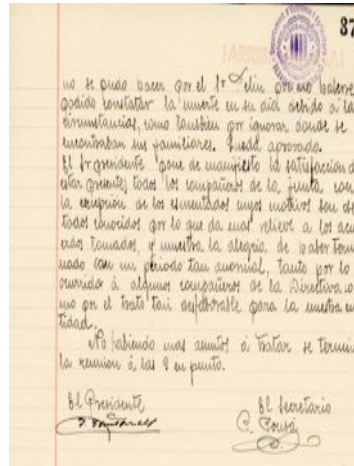 37
no se pudo hacer por el Sr Felin por no haberse
podido constatar la muerte en su dia debido á las
circunstancias, como tambien por ignorar donde se
encontraban sus familiares. Queda aprovada.
El Sr presidente pone de manifiesto la satisfaccion de
estar presentes todos los compañeros de la junta, con
la excepción de los esmentados cuyos motivos son de
todos conocidos por lo que da mas relieve a los acu
erdos tomados, y muestra la alegria de haber termi
nado con un periodo tan anormal, tanto por lo
ocurrido á algunos compañeros de la Directiva co
mo por el trato tan desfavorable para la nuestra en
tidad.
No habiendo mas asuntos á tratar se termina
la reunion á las 9 en punto.
El Presidente
El Secretario